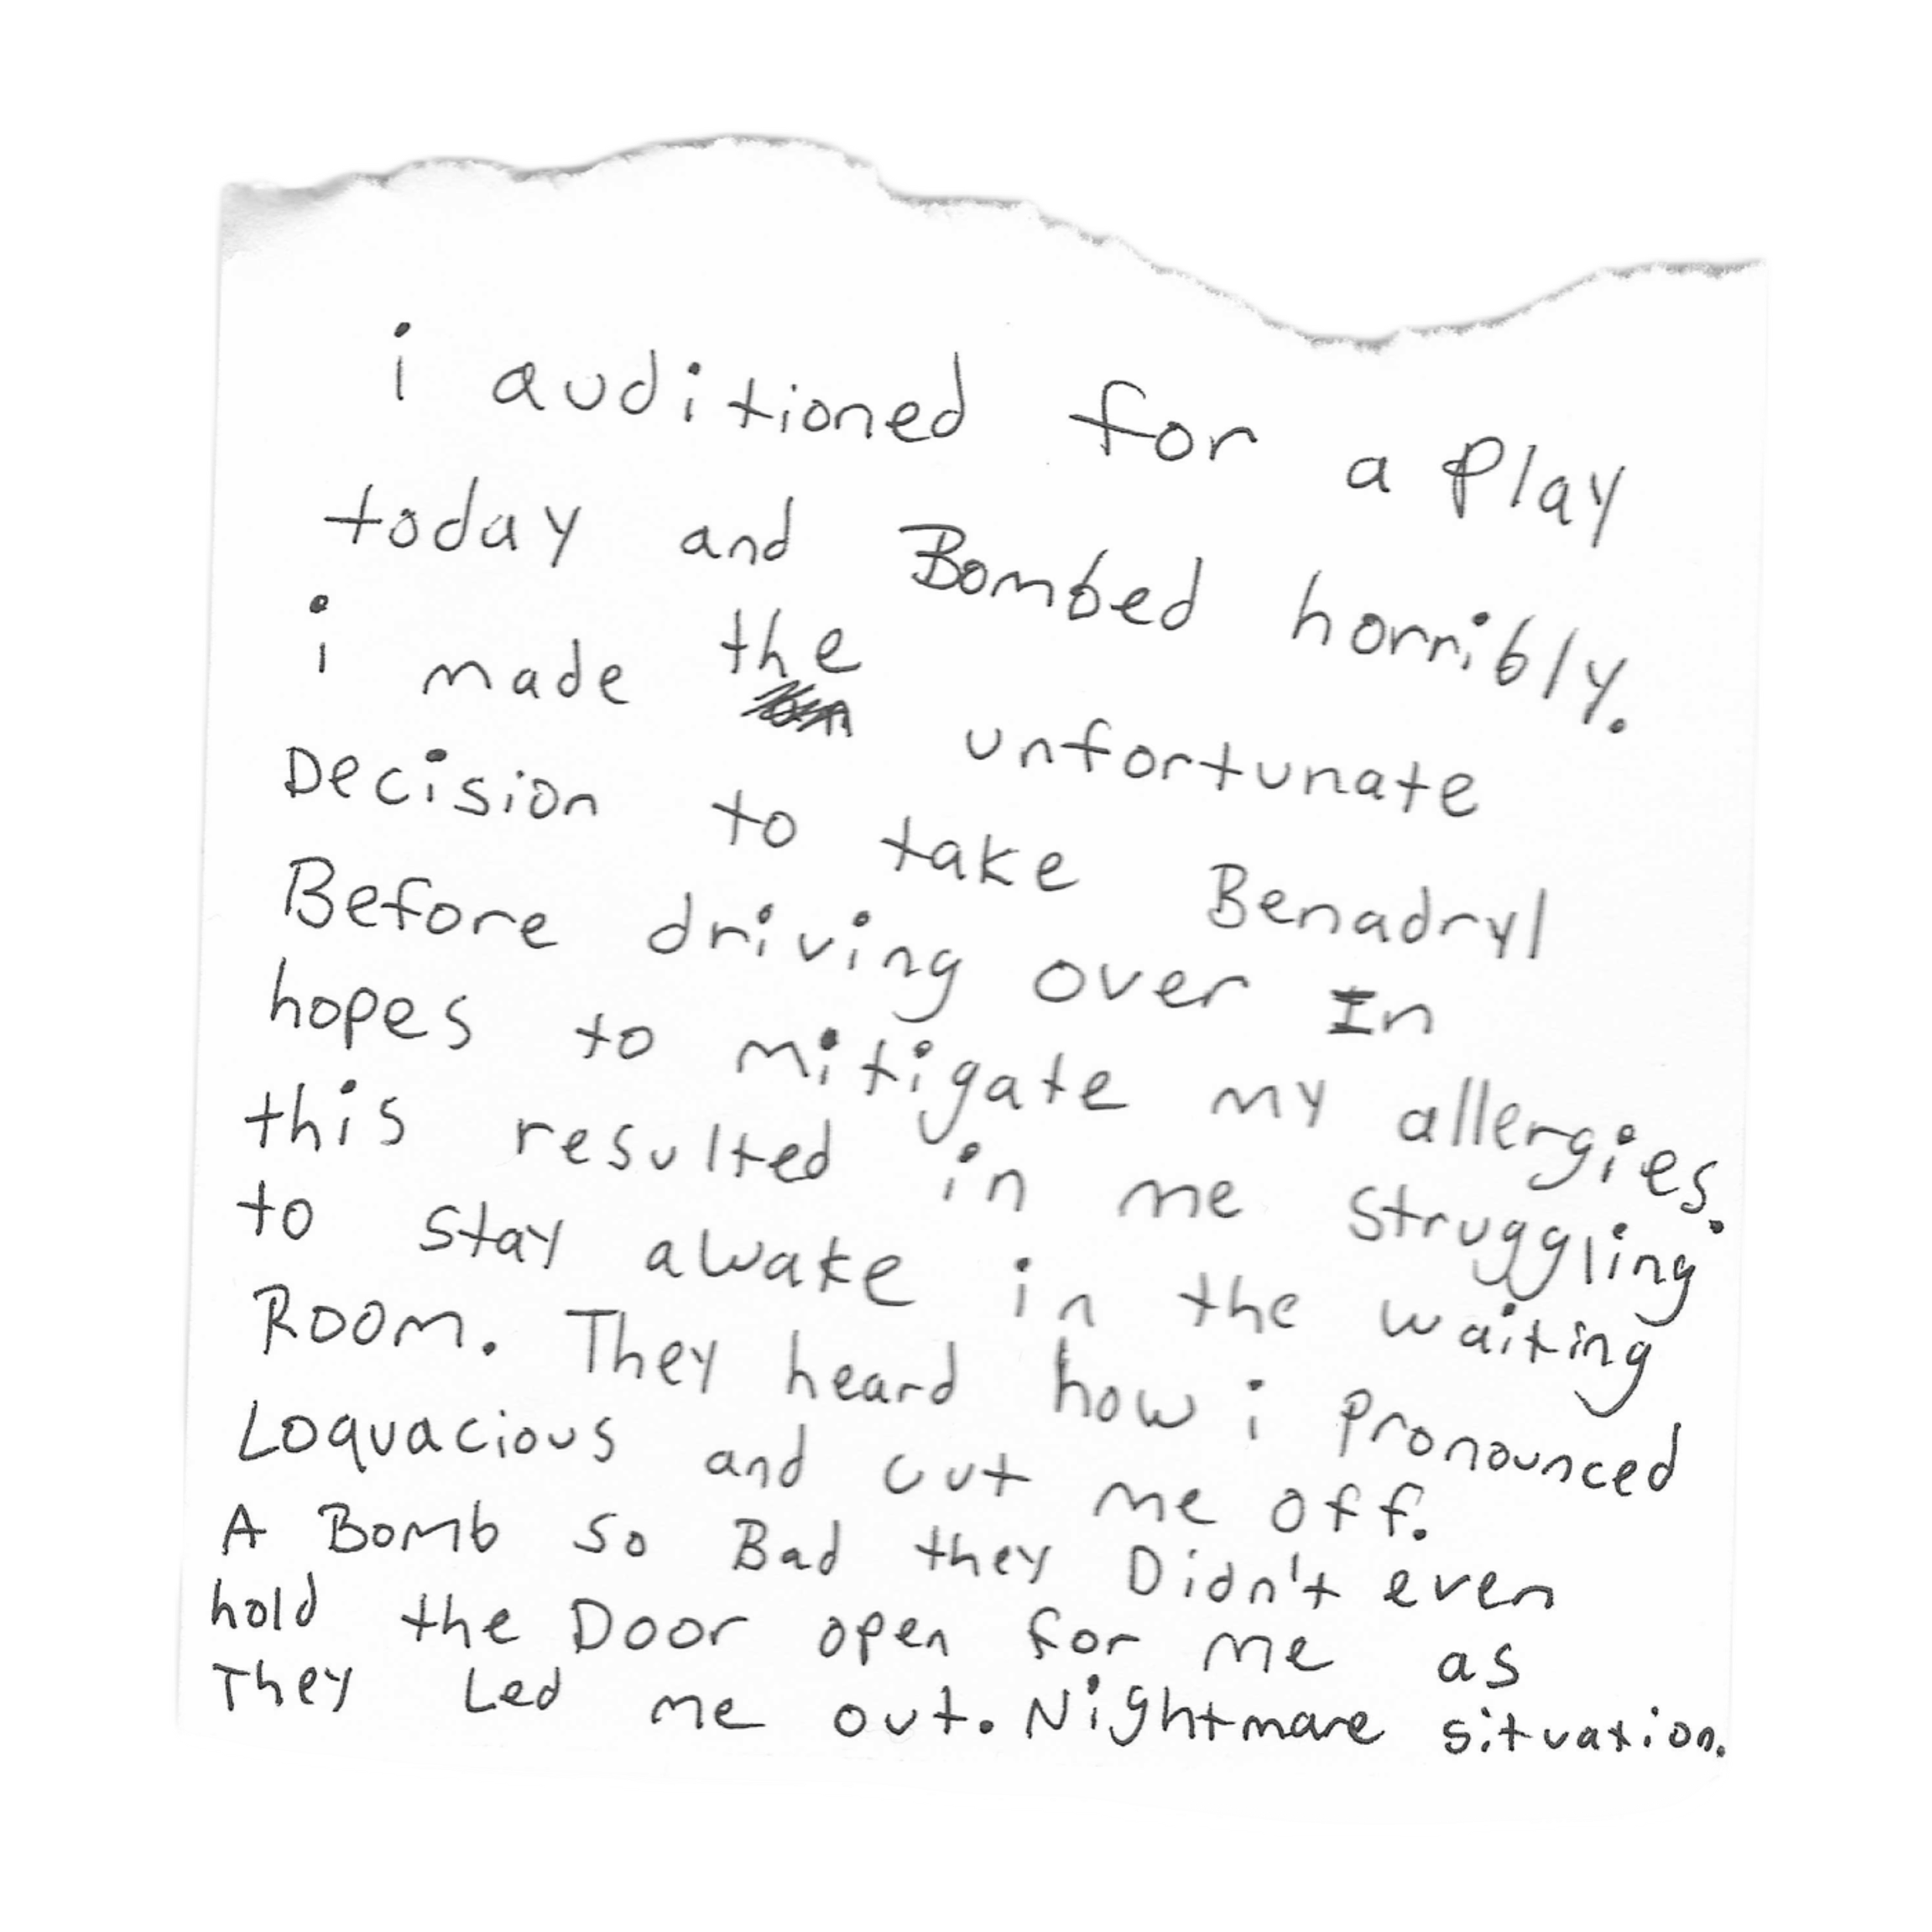 i auditioned for a Play
today and Bombed horribly.
i made the unfortunate
Decision to take Benadryl
Before driving over In
hopes to mitigate my allergies.
this resulted in me struggling
to stay awake in the waiting
Room. They heard how i pronounced
Loquacious and cut me off.
A Bomb so Bad they Didn't even
hold the Door open for me as
They Led me out. Nightmare situation.